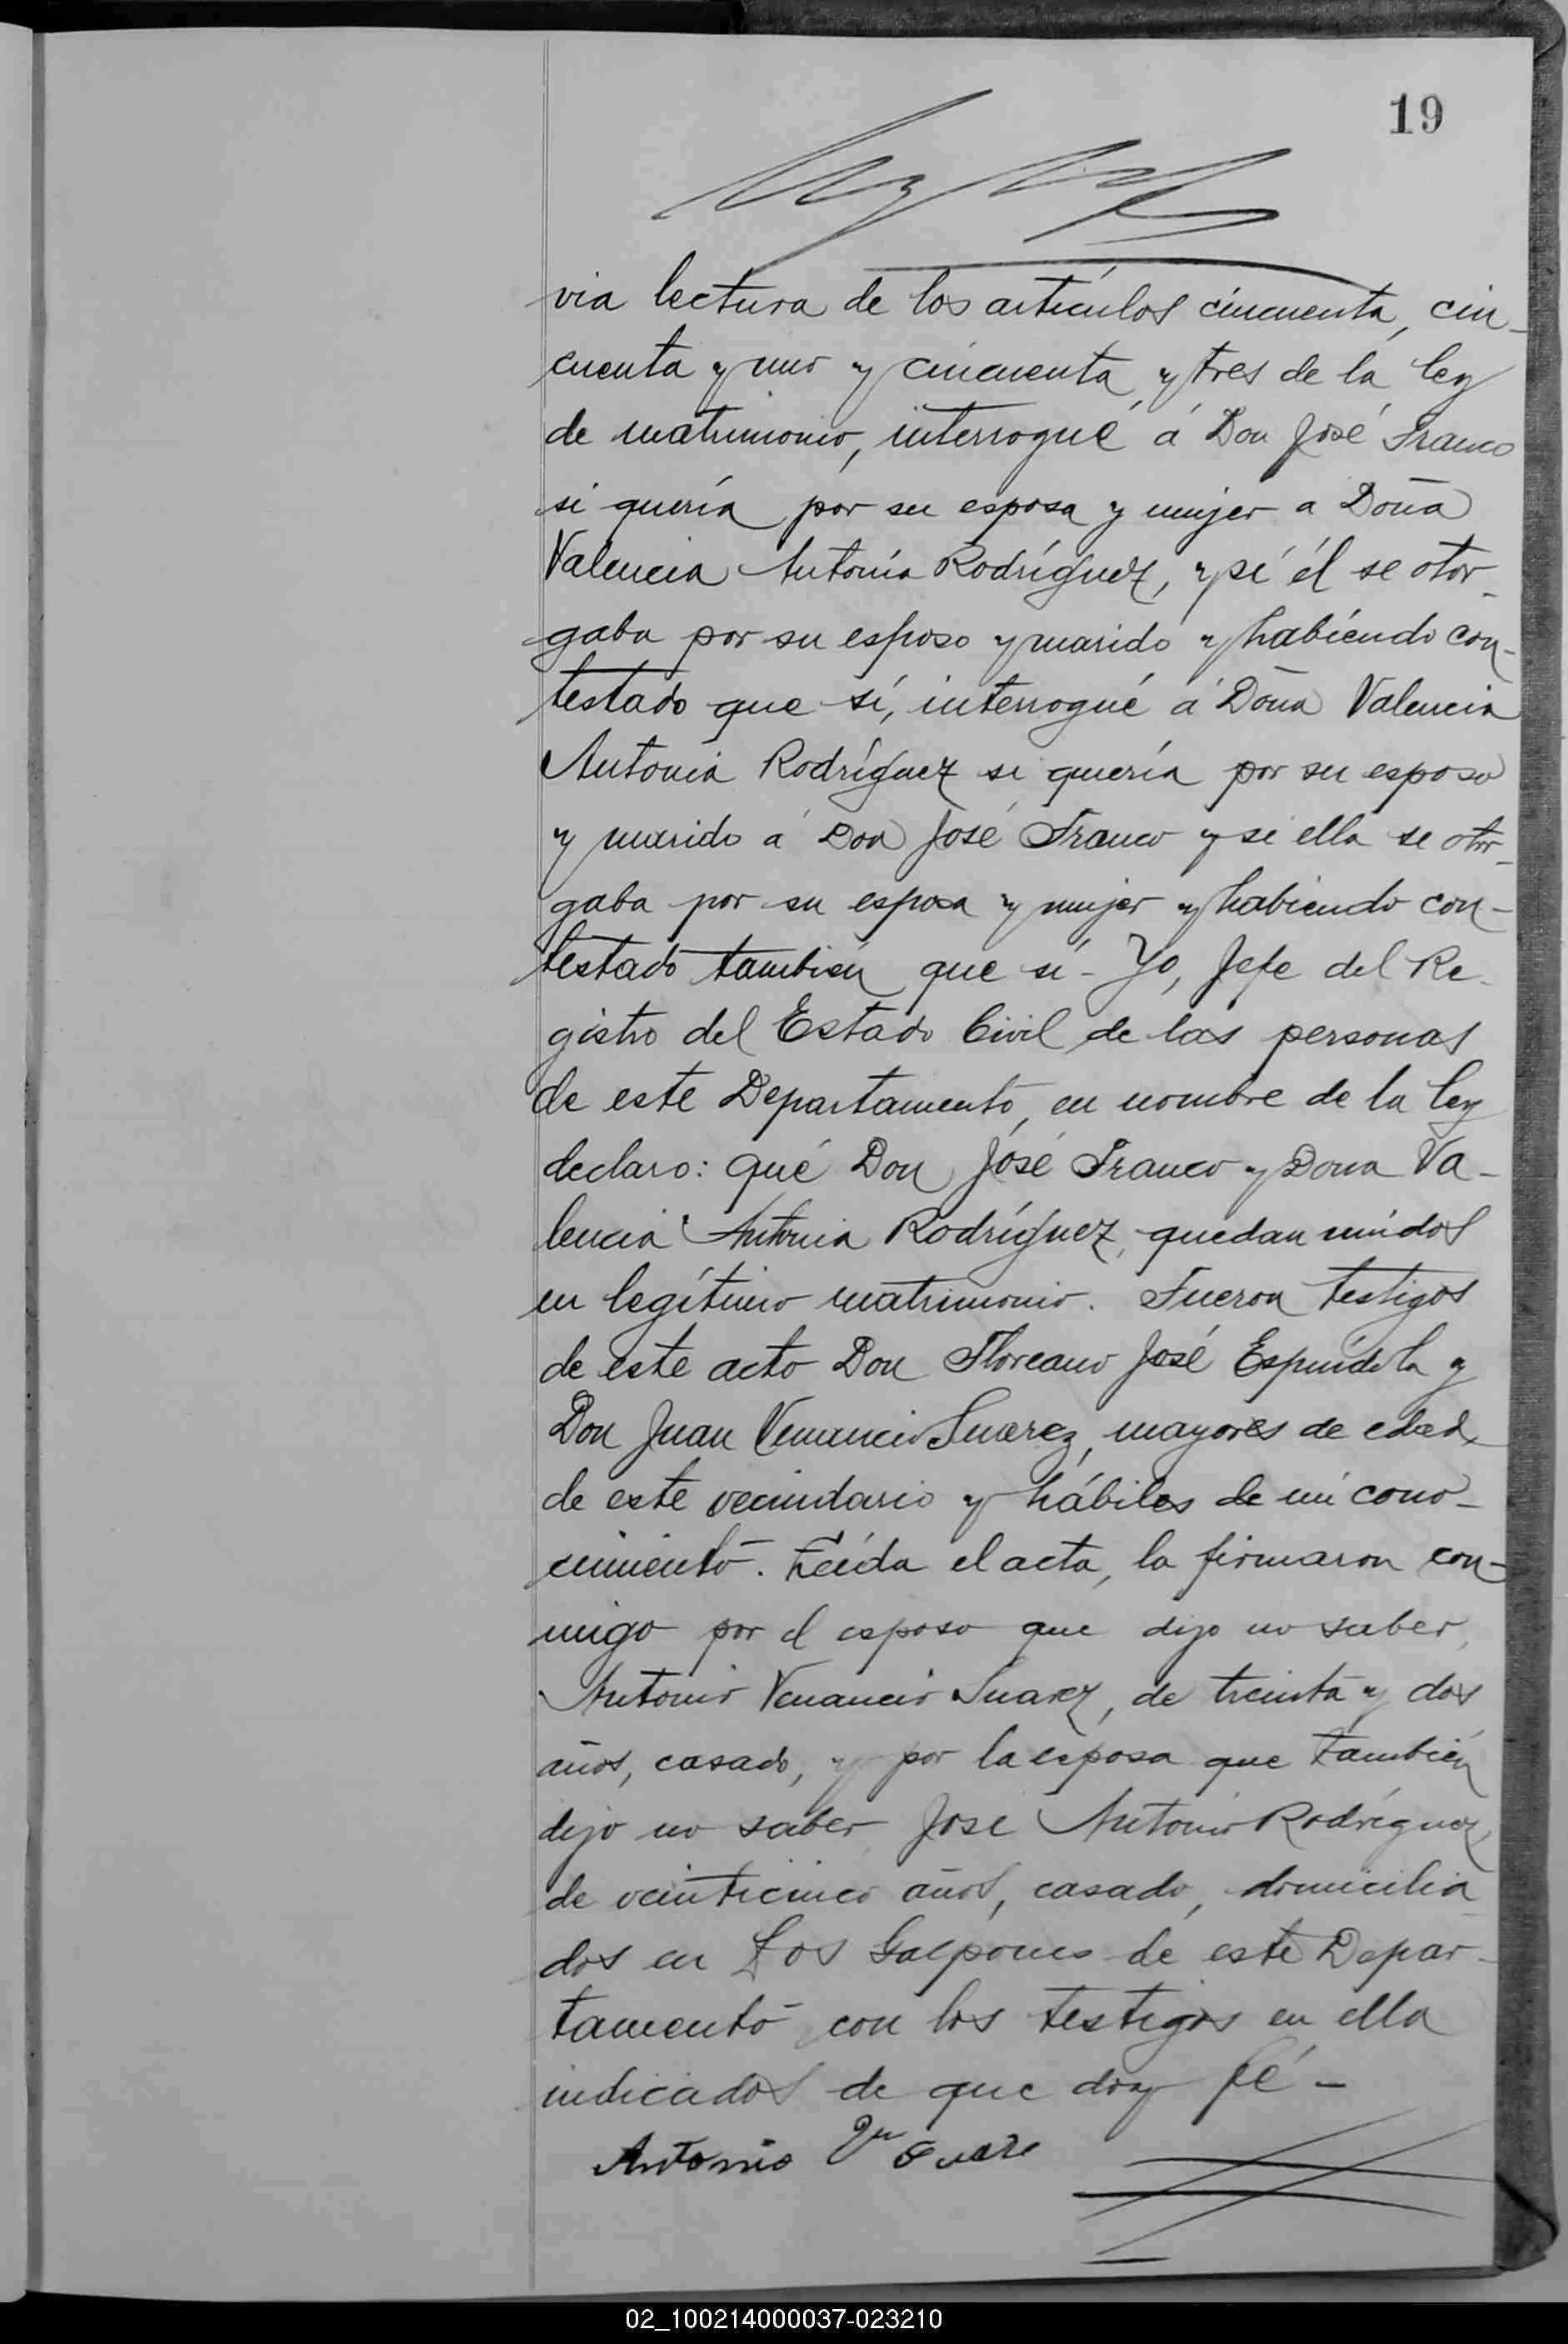 19
via lectura de los artículos cincuenta, cin-
cuenta y uno y cincuenta y tres de la ley
de matrimonio, interrogué á Don José Franco
si quería por su esposa y mujer a Doña
Valencia Antonia Rodríguez, y si él se otor-
gaba por su esposo y marido y habiendo con-
testado que sí, interrogué á Doña Valencia
Antonia Rodríguez si quería por su esposo
y marido á Don José Franco y si ella se otor-
gaba por su esposa y mujer y habiendo con-
testado también que sí - Yo, Jefe del Re-
gistro del Estado Civil de las personas
de este Departamento, en nombre de la ley
declaro: qué Don José Franco y Dona Va-
lencia Antonia Rodríguez, quedan unidos
en legítimo matrimonio. Fueron testigos
de este acto Don Floreano José Espíndola y
Don Juan Venancio Suarez, mayores de edad,
de este vecindario y hábiles de mi cono-
cimiento. Leída el acta, la firmaron con-
migo por el esposo que dijo no saber,
Antonio Venancio Suarez, de treinta y dos
años, casado, y por la esposa que también
dijo no saber José Antonio Rodríguez,
de veinticinco años, casado, domicilia-
dos en Los Galpones de este Depar-
tamento con los testigos en ella
indicados de que doy fé -
Antonio Vn Suare
02_100214000037-023210